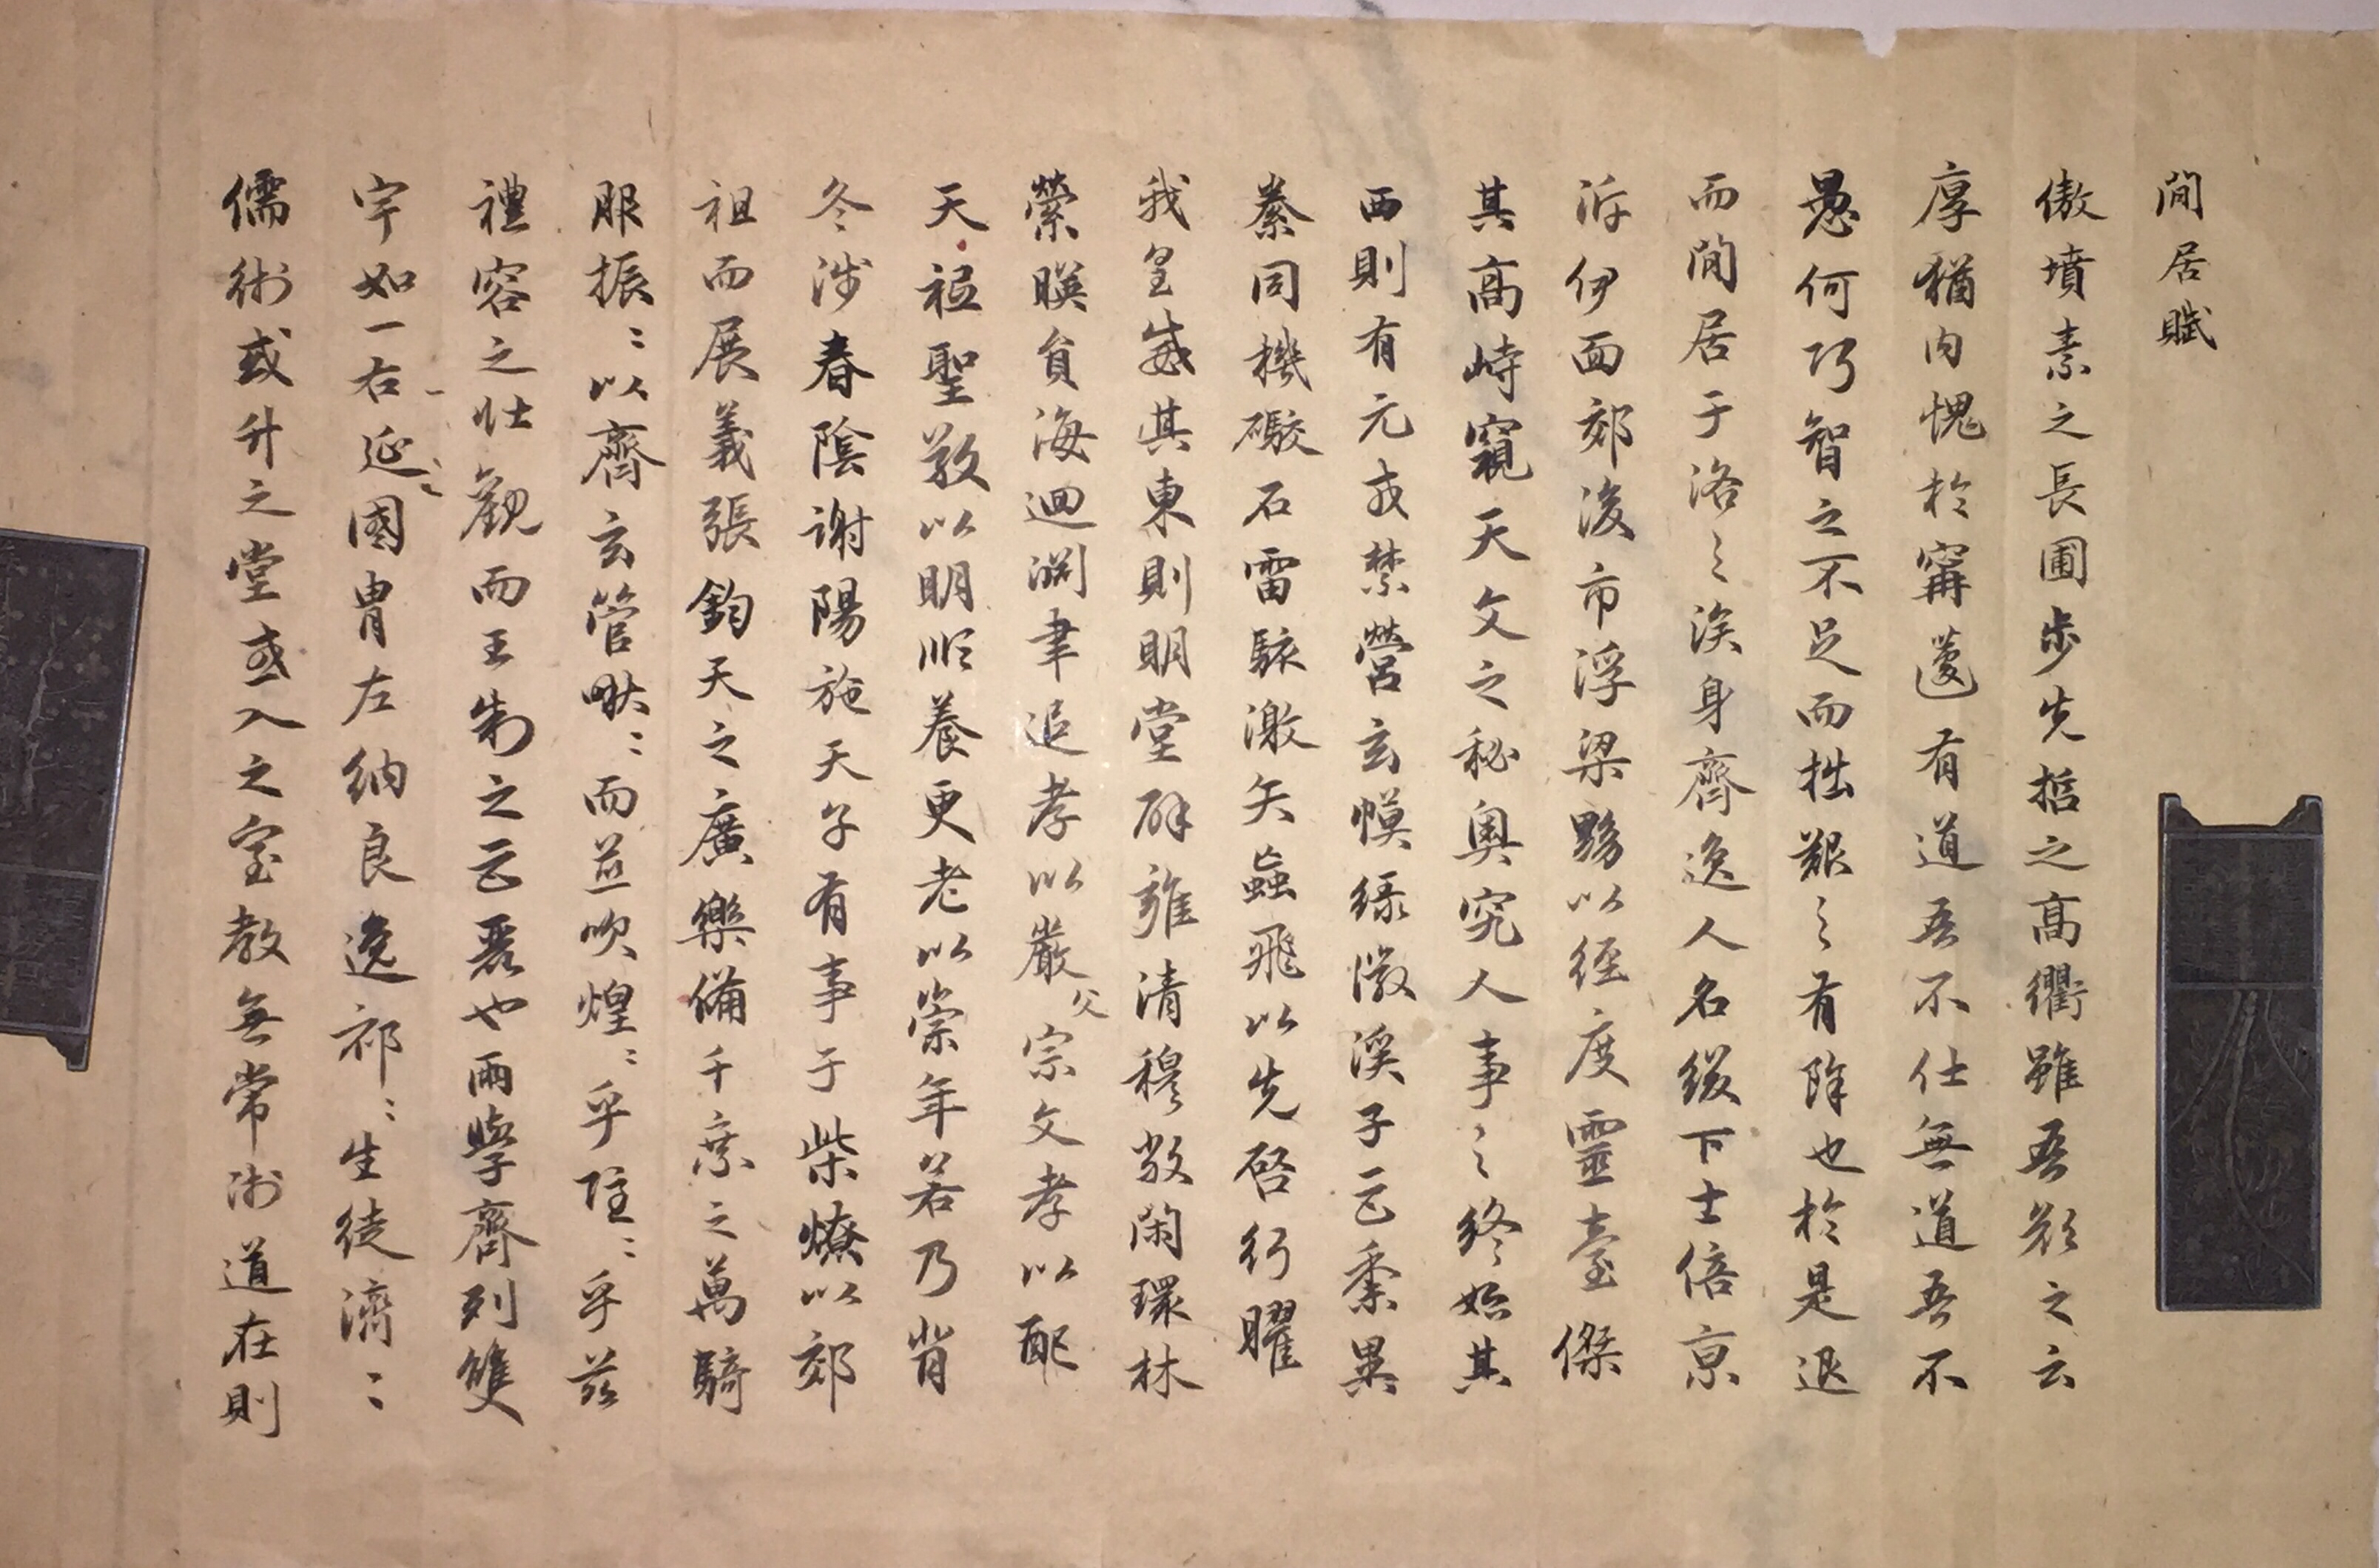 閒居賦
傲墳素之長圃步先哲之高衢雖吾顏之云
厚猶內愧於甯蘧有道吾不仕無道吾不
愚何巧智之不足而拙艱〻有除也於是退
而閒居于洛〻涘身齊逸人名綴下士倍京
泝伊面郊後市浮梁黝以徑度靈臺傑
其高峙窺天文之秘奧究人事〻終始其
西則有元戎禁營玄幙綠徽溪子巨黍異
絭同機礮石雷駭激矢蝱飛以先啓行曜
我皇威其東則明堂辟雍清穆敞閑環林
縈暎負海迴渊聿追孝以嚴父宗文孝以配
天祗聖敬以明順養更老以崇年若乃背
冬涉春陰謝陽施天子有事于柴燎以郊
祖而展義張鈞天之廣樂備千乘之萬騎
服振〻以齊玄管啾〻而並吹煌〻乎隱〻乎茲
禮容之壯觀而王制之巨麗也兩學齊列雙
宇如一右延國胄左納良逸祁〻生徒濟〻
儒術或升之堂或入之室教無常师道在則